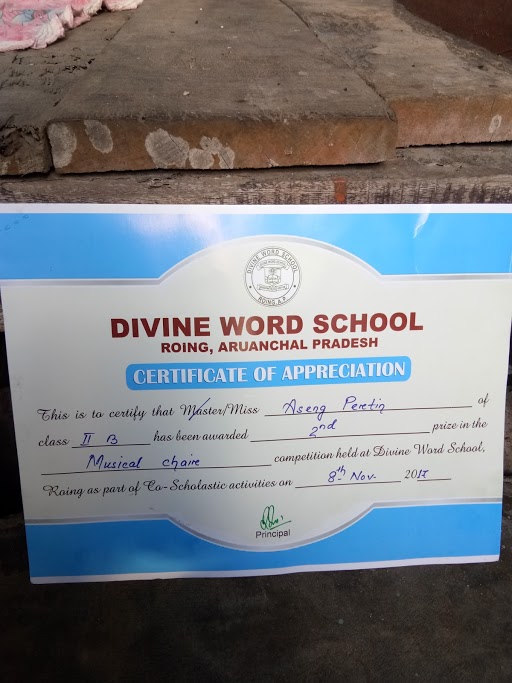 DIVINE WORD SCHOOL
ROING, A.P
DIVINE WORD SCHOOL
ROING, ARUANCHAL PRADESH
CERTIFICATE OF APPRECIATION
This is to certify that Master/Miss Aseng Peretin of
class II B has been awarded 2nd prize in the
Musical chair competition held at Divine Word School,
Roing as part of Co-Scholastic activities on 8th Nov. 2017
Principal